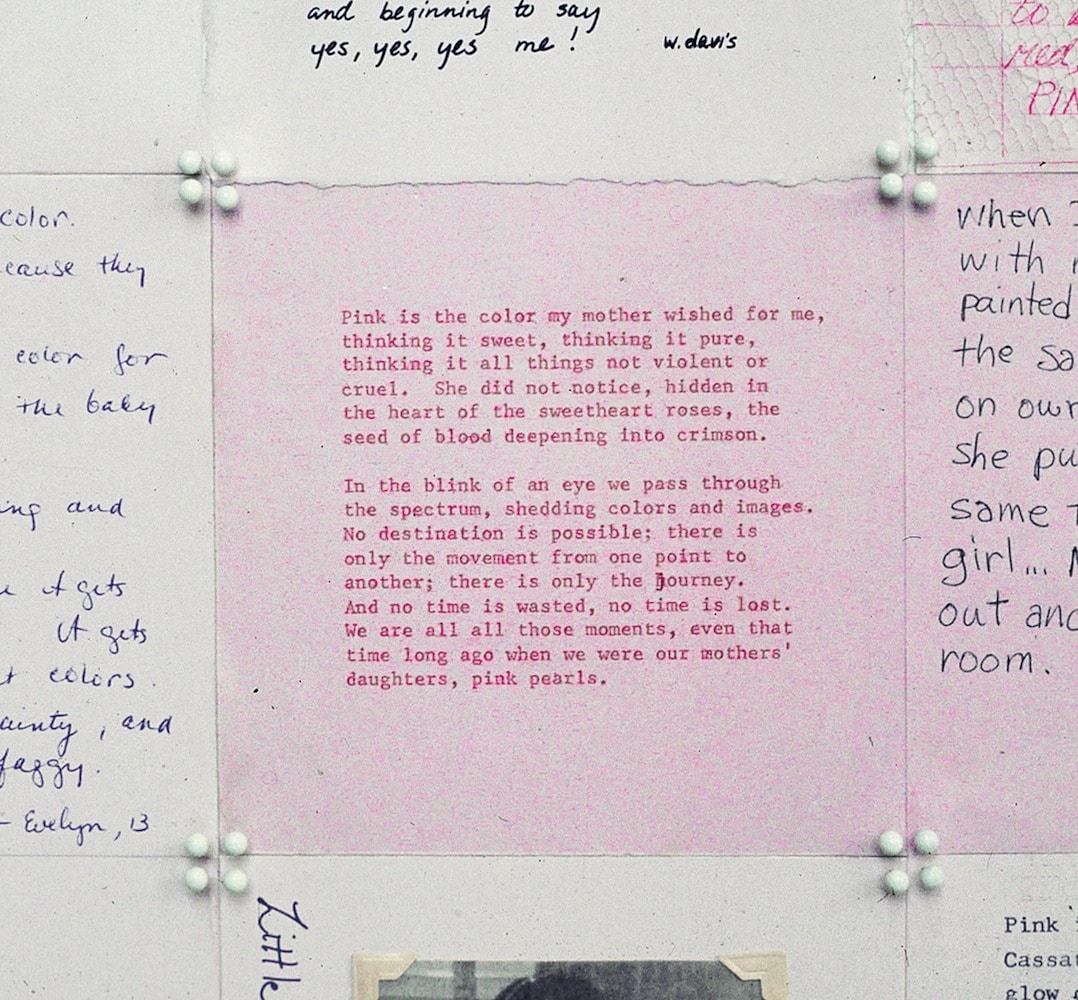 and beginning to say
yes, yes, yes me!
w. davis
to
PIN
color.
cause they
color for
the baby
ing and
it gets
It gets
colors.
, and
faggy.
- Evelyn, 13
Pink is the color my mother wished for me,
thinking it sweet, thinking it pure,
thinking it all things not violent or
cruel.  She did not notice, hidden in
the heart of the sweetheart roses, the
seed of blood deepening into crimson.
In the blink of an eye we pass through
the spectrum, shedding colors and images.
No destination is possible; there is
only the movement from one point to
another; there is only the journey.
And no time is wasted, no time is lost.
We are all all those moments, even that
time long ago when we were our mothers'
daughters, pink pearls.
When I
with
painted
the sa
on our
she pu
same
girl...
out and
room.
Little
Pink
Cassat
glow